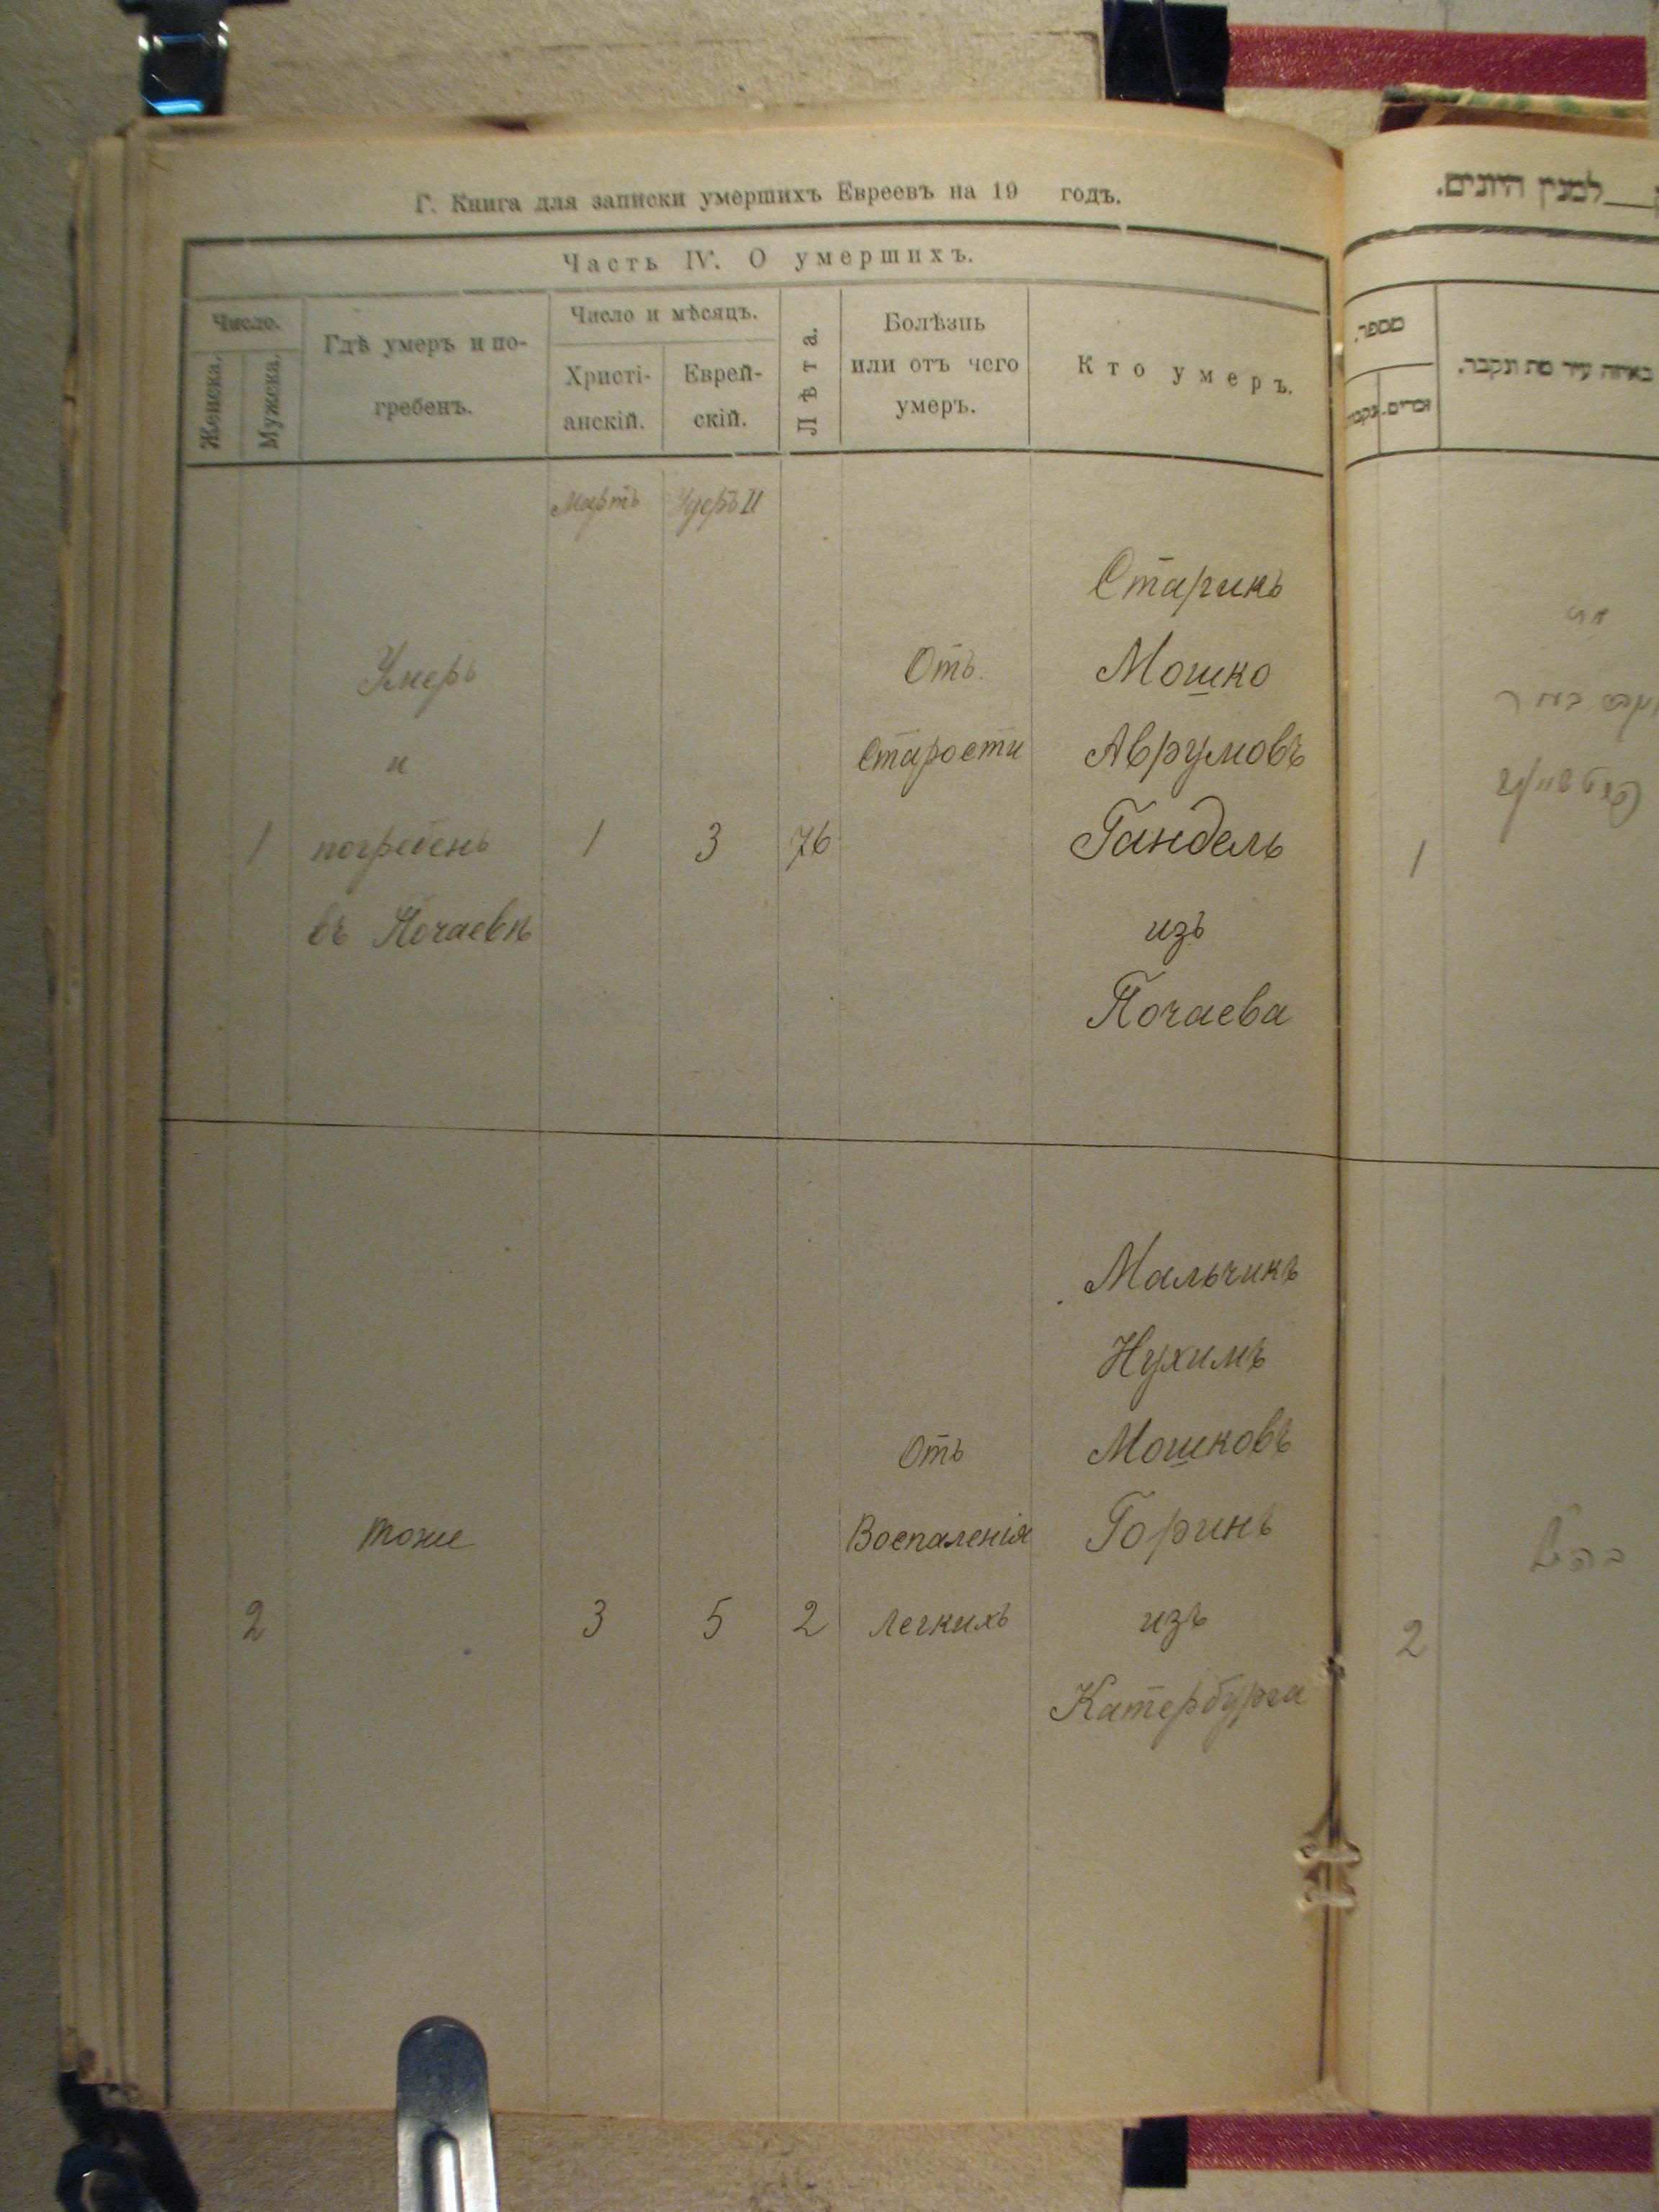 Г. Книга для записки умершихъ Евреевъ на 19 годъ.
Часть IV. О умершихъ.
Число.
Женска.
Мужска.
Гдѣ умеръ и по-
гребенъ.
Число и мѣсяцъ.
Христі-
анскій.
Еврей-
скій.
Лѣта.
Болѣзнь
или отъ чего
умеръ.
Кто умеръ.
Мартъ II
Старикъ
Умеръ Отъ Мошко
и Старости Аврумовъ
1 погребенъ 1 3 76 Гандель
въ Почаевѣ изъ
Почаева
Мальчикъ
Нухимъ
Отъ Мошковъ
тоже Воспаленія Горинъ
2 3 5 2 легкихъ изъ
Катербурга
למנין היונים.
מספר.
זכרים.
באיזה עיר מת ונקבר.
1
2